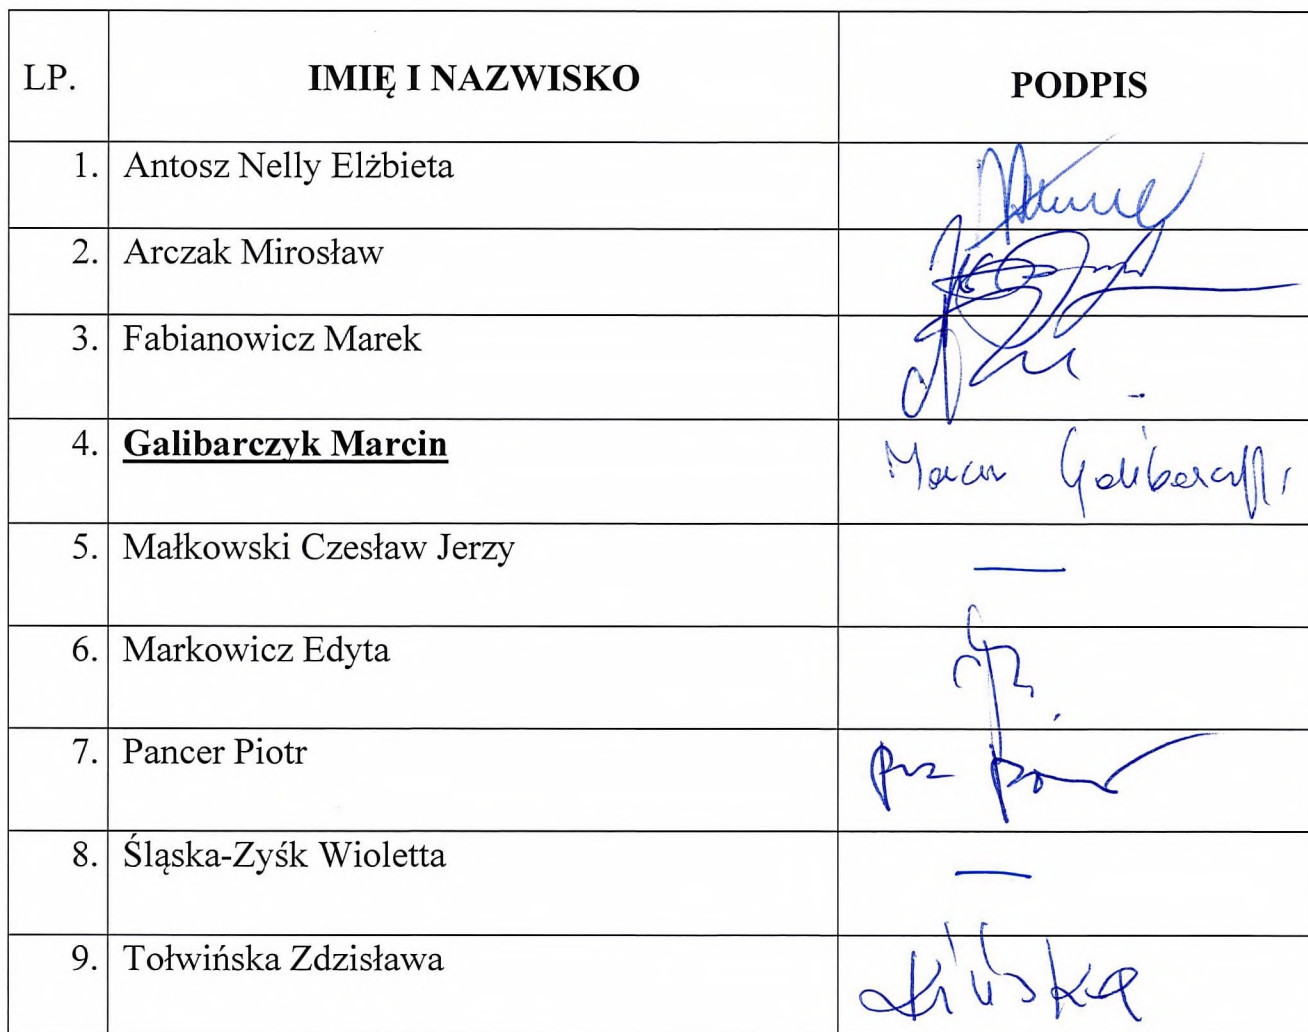 LP. IMIĘ I NAZWISKO PODPIS
1. Antosz Nelly Elżbieta
2. Arczak Mirosław
3. Fabianowicz Marek
4. Galibarczyk Marcin Marcin
5. Małkowski Czesław Jerzy —
6. Markowicz Edyta
7. Pancer Piotr
8. Śląska-Zyśk Wioletta —
9. Tołwińska Zdzisława